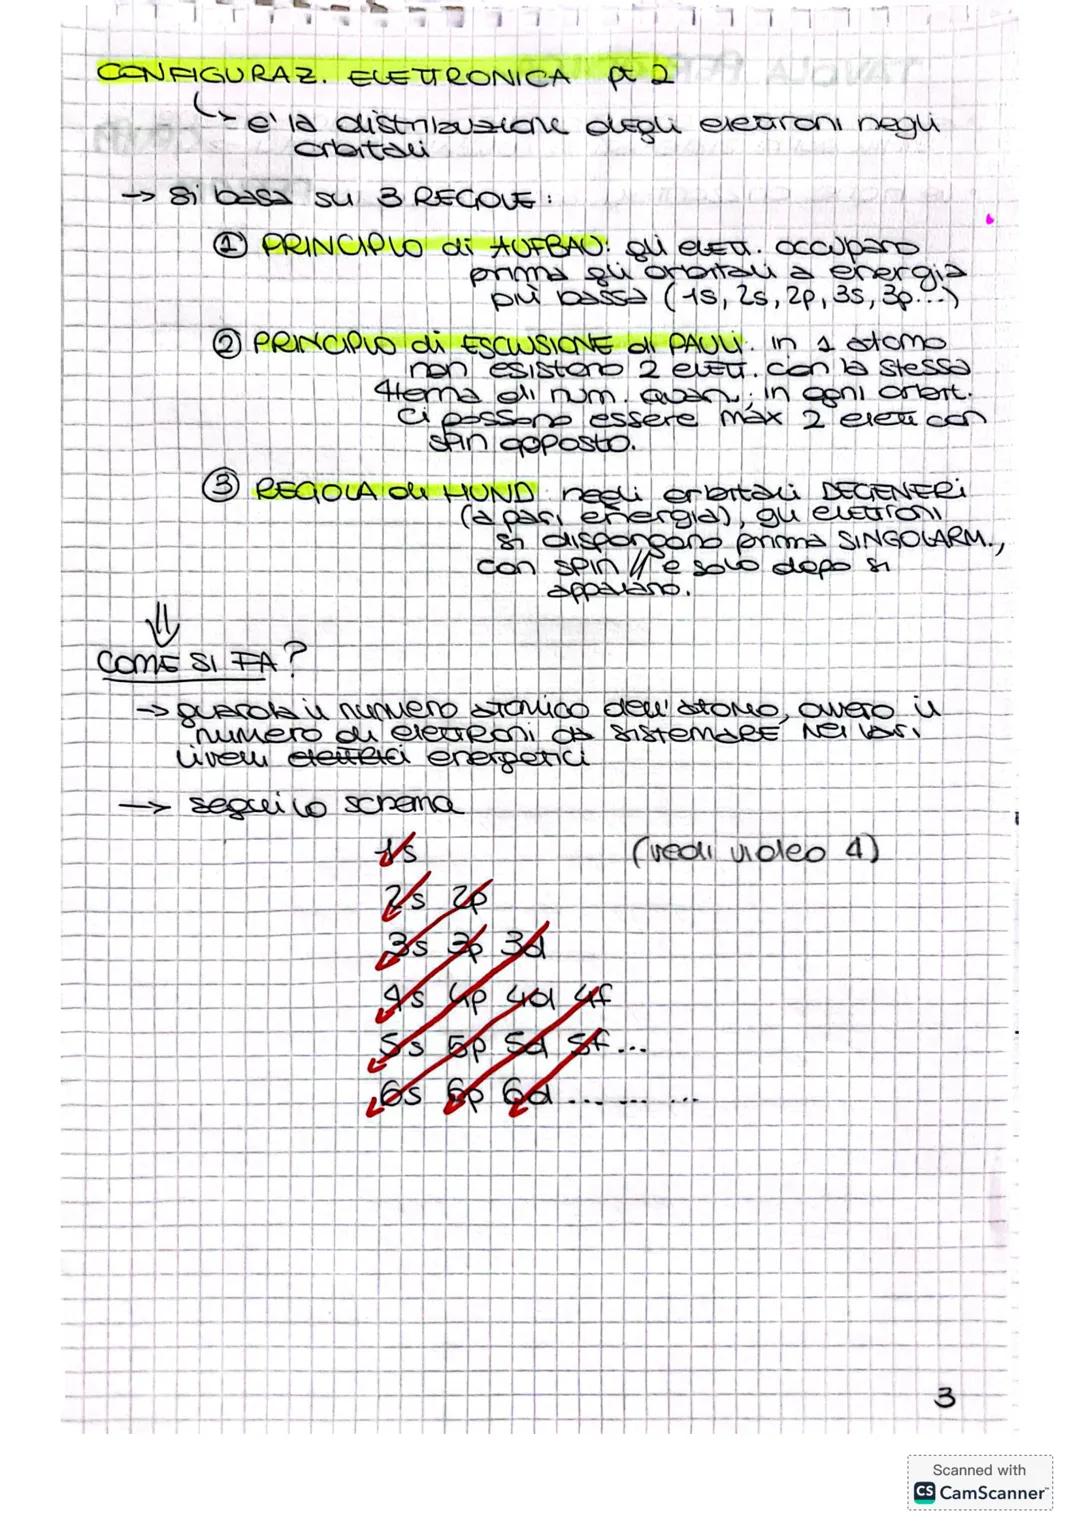 CONFIGURAZ. ELETTRONICA pt 2
↳ e' la distribuzione degli elettroni negli
orbitali
→ si basa su 3 REGOLE:
① PRINCIPIO di AUFBAU: gli elett. occupano
prima gli orbitali a energia
più bassa (1s, 2s, 2p, 3s, 3p...)
② PRINCIPIO di ESCLUSIONE di PAULI: in 1 atomo
non esistono 2 elett. con la stessa
4terna di num. quan.; in ogni orbit.
ci possono essere max 2 elett con
spin opposto.
③ REGOLA di HUND: negli orbitali DEGENERI
(a pari energia), gli elettroni
si dispongono prima SINGOLARM.,
con spin // e solo dopo si
appaiano.
⇓
COME SI FA?
→ guarda il numero atomico dell'atomo, ovvero il
numero di elettroni da SISTEMARE NEI vari
livelli elettrici energetici
→ segui lo schema
1s (vedi video 4)
2s 2p
3s 3p 3d
4s 4p 4d 4f
5s 5p 5d 5f...
6s 6p 6d ... ... ...
3
Scanned with
CS CamScanner